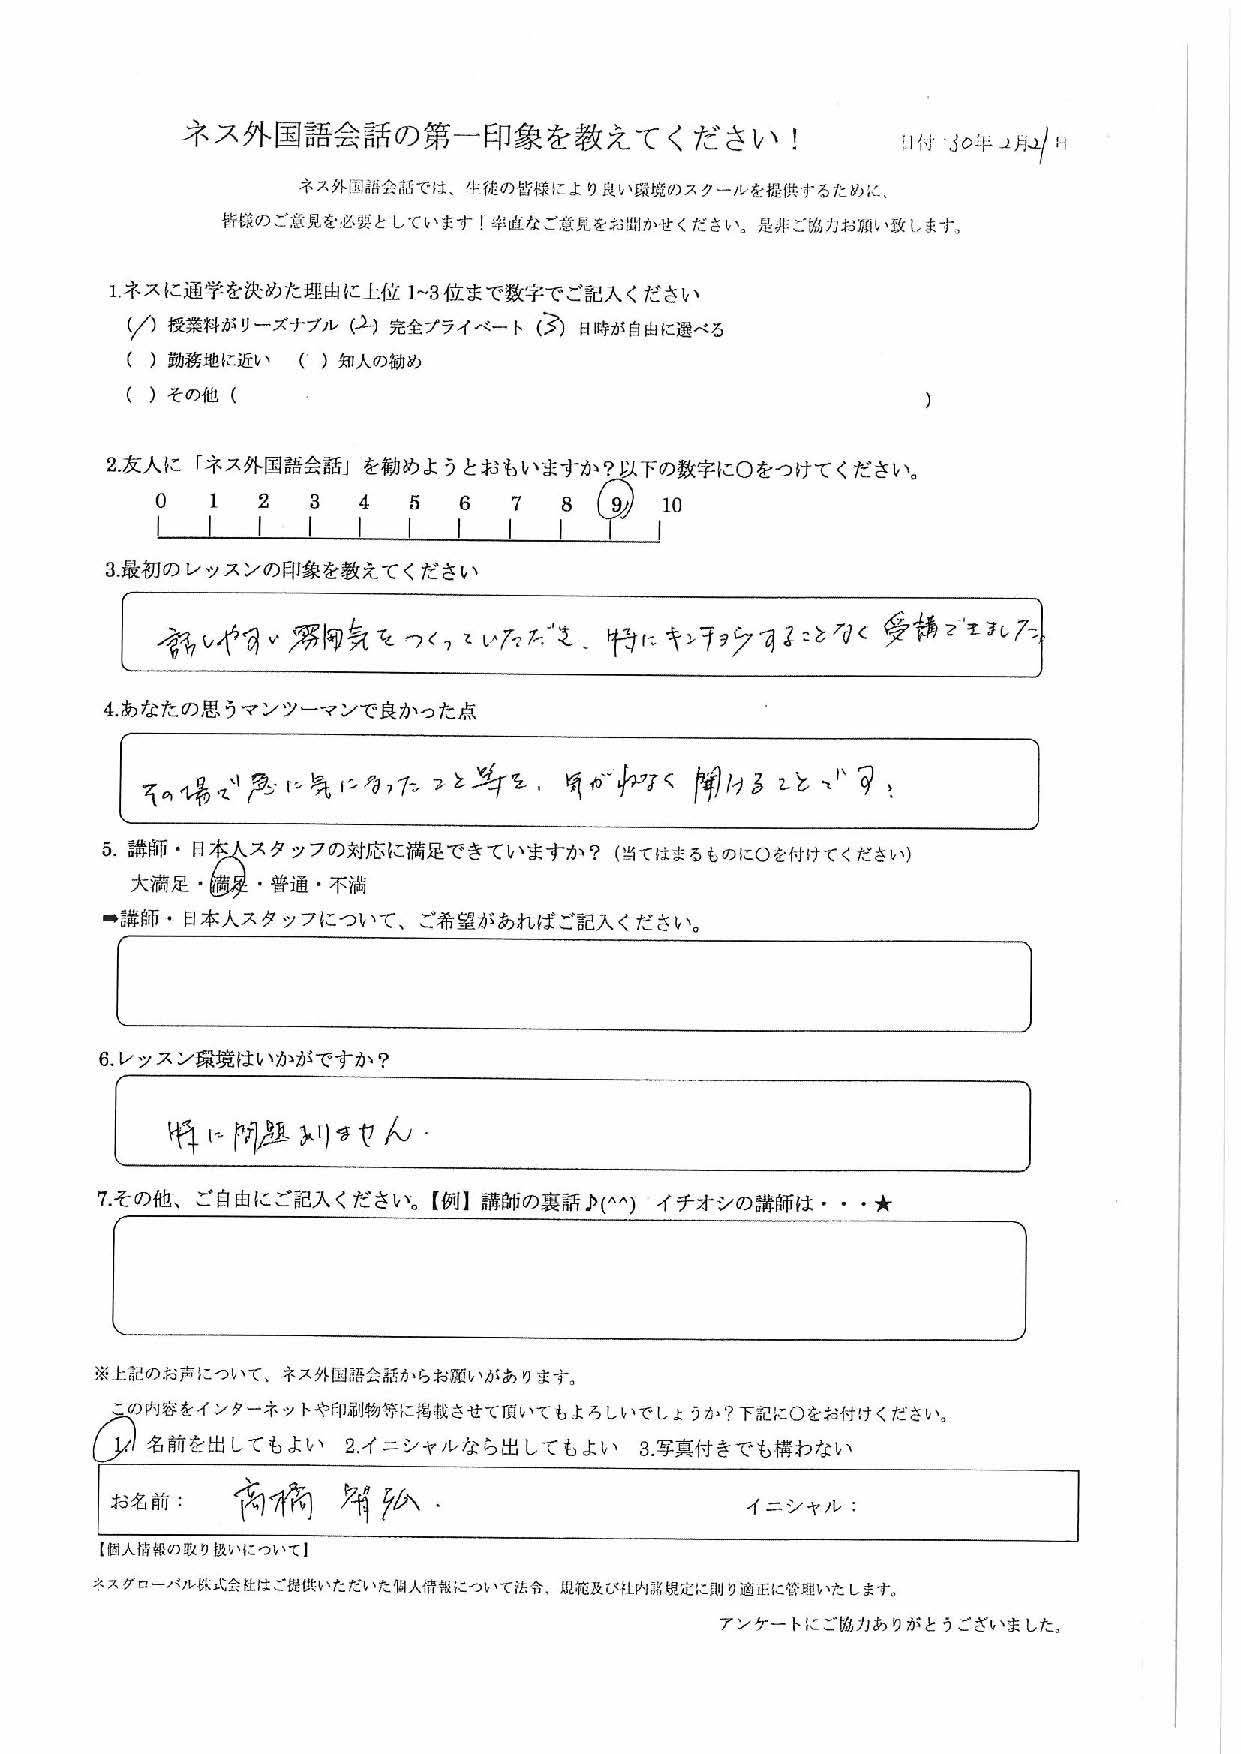 ネス外国語会話の第一印象を教えてください！
日付 30年2月21日
ネス外国語会話では、生徒の皆様により良い環境のスクールを提供するために、
皆様のご意見を必要としています！率直なご意見をお聞かせください。是非ご協力お願い致します。
1.ネスに通学を決めた理由に上位 1~3 位まで数字でご記入ください
(1) 授業料がリーズナブル (2) 完全プライベート (3) 日時が自由に選べる
( ) 勤務地に近い ( ) 知人の勧め
( ) その他 ( )
2.友人に「ネス外国語会話」を勧めようとおもいますか？以下の数字に〇をつけてください。
0 1 2 3 4 5 6 7 8 9 10
3.最初のレッスンの印象を教えてください
話しやすい雰囲気をつくっていただき、特にキンチョウすることなく受講できました。
4.あなたの思うマンツーマンで良かった点
その場で急に気になったこと等を、気がねなく聞けることです。
5. 講師・日本人スタッフの対応に満足できていますか？（当てはまるものに〇を付けてください）
大満足・満足・普通・不満
➡講師・日本人スタッフについて、ご希望があればご記入ください。
6.レッスン環境はいかがですか？
特に問題ありません.
7.その他、ご自由にご記入ください。【例】講師の裏話♪(^^) イチオシの講師は・・・★
※上記のお声について、ネス外国語会話からお願いがあります。
この内容をインターネットや印刷物等に掲載させて頂いてもよろしいでしょうか？下記に〇をお付けください。
1. 名前を出してもよい 2.イニシャルなら出してもよい 3.写真付きでも構わない
お名前： 高橋 弘. イニシャル：
【個人情報の取り扱いについて】
ネスグローバル株式会社はご提供いただいた個人情報について法令、規範及び社内諸規定に則り適正に管理いたします。
アンケートにご協力ありがとうございました。